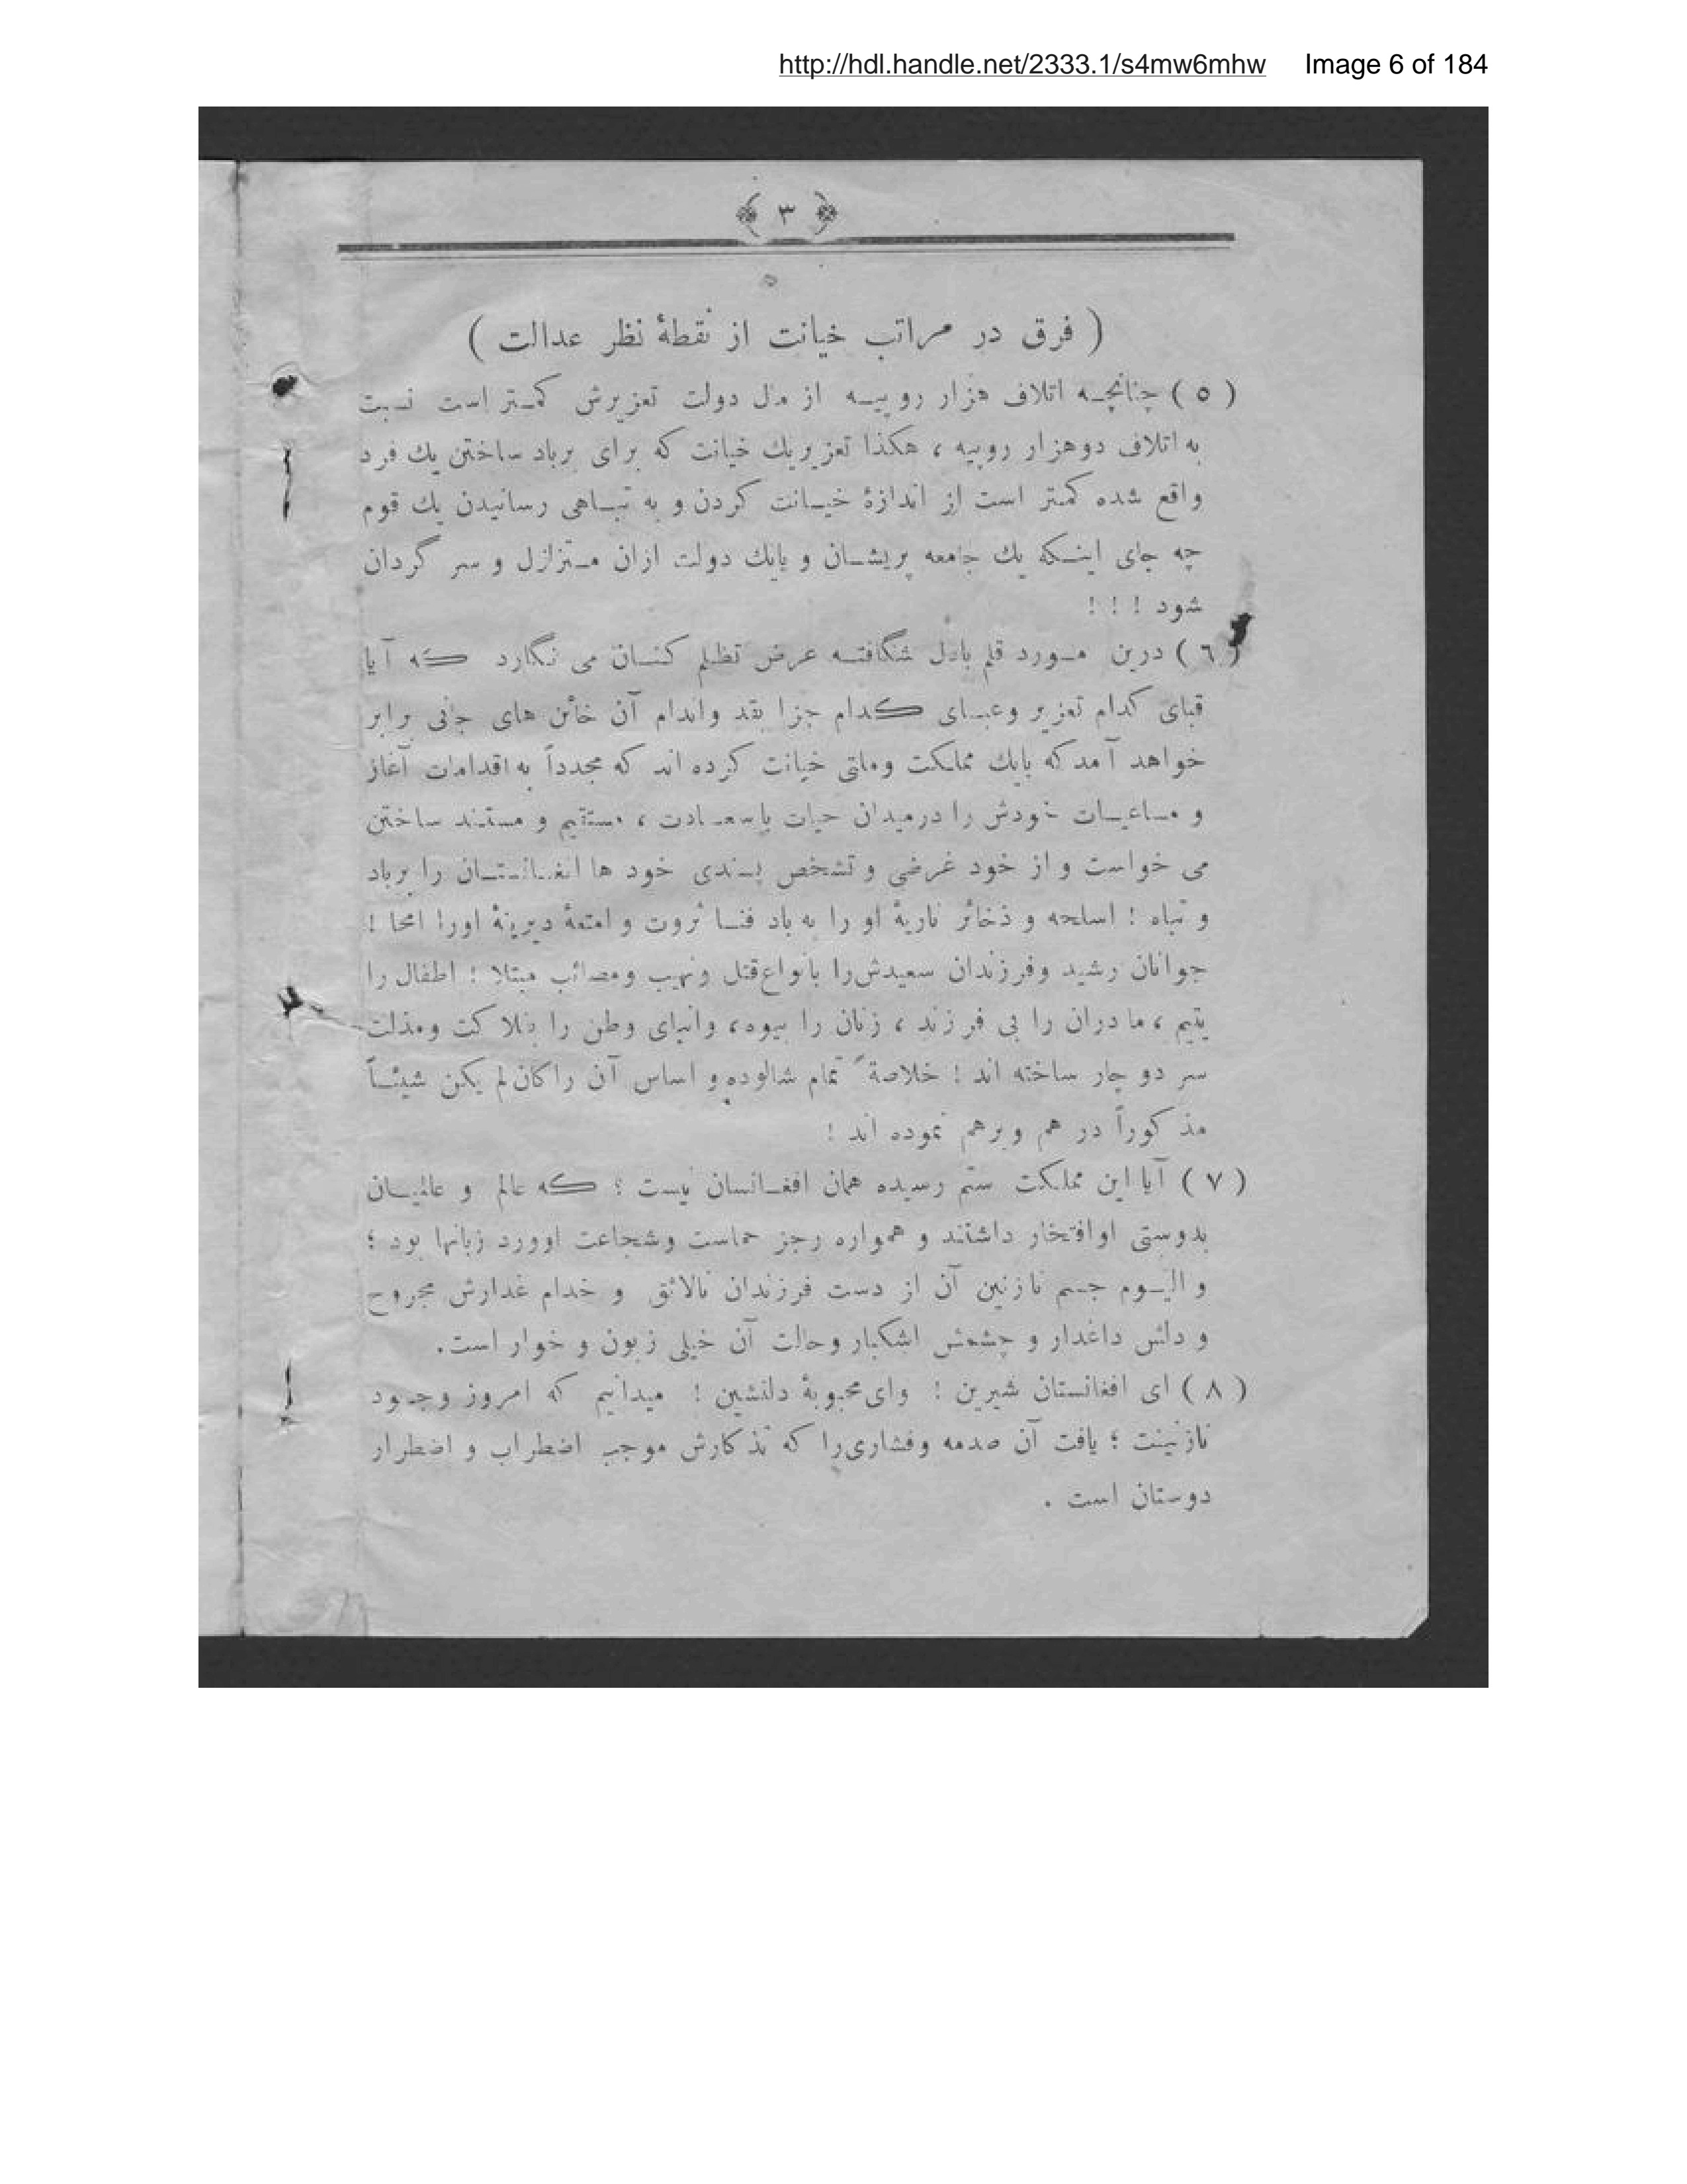 http://hdl.handle.net/2333.1/s4mw6mhw Image 6 of 184
﴿ ٣ ﴾
( فرق در مراتب خیانت از نقطهٔ نظر عدالت )
( ٥ ) چنانچه اتلاف هزار روپیه از مال دولت تعزیرش کمتر است نسبت
به اتلاف دوهزار روپیه ، هکذا تعزیر یك خیانت که برای برباد ساختن یك فرد
واقع شده کمتر است از اندازهٔ خیانت کردن و به تباهی رسانیدن یك قوم
چه جای اینکه یك جامعه پریشان و یایك دولت ازان متزلزل و سر گردان
شود ! ! !
( ٦ ) درین مورد قلم بادل شگافته عرض تظلم کنان می نگارد که آیا
قبای کدام تعزیر وعبای کدام جزا بقد واندام آن خائن های جانی برابر
خواهد آمد که بایك مملکت وملتی خیانت کرده اند که مجدداً به اقدامات آغاز
و مساعیات خودش را درمیدان حیات باسعادت ، مستقیم و مستند ساختن
می خواست و از خود غرضی و تشخص پسندی خود ها افغانستان را برباد
و تباه ! اسلحه و ذخائر ناریهٔ او را به باد فنا ثروت و امتعهٔ دیرینهٔ اورا امحا !
جوانان رشید وفرزندان سعیدش را بانواع قتل ونهیب ومصائب مبتلا ! اطفال را
یتیم ، مادران را بی فرزند ، زنان را بیوه، وانبای وطن را بفلاکت ومذلت
سر دو چار ساخته اند ! خلاصةً تمام شالوده و اساس آن را کان لم یکن شیئاً
مذکوراً در هم وبرهم نموده اند !
( ٧ ) آیا این مملکت ستم رسیده همان افغانسان نیست ؟ که عالم و عالمیان
بدوستی او افتخار داشتند و همواره رجز حماست وشجاعت اوورد زبانها بود ؛
و الیوم جسم نازنین آن از دست فرزندان نالائق و خدام غدارش مجروح
و دلش داغدار و چشمش اشکبار وحالت آن خیلی زبون و خوار است.
( ٨ ) ای افغانستان شیرین ! وای محبوبهٔ دلنشین ! میدانیم که امروز وجود
نازنینت ؛ یافت آن صدمه وفشاری را که تذکارش موجب اضطراب و اضطرار
دوستان است .